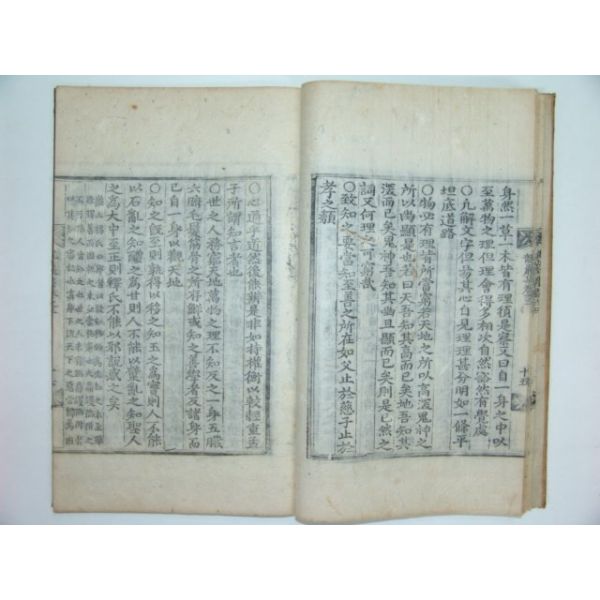 身然一草一木皆有理須是察又曰自一身之中以
至萬物之理但理會得多相次自然豁然有覺處
○凡解文字但易其心自見理理甚分明如一條平
坦底道路
○物必有理皆所當窮若天地之所以高深鬼神之
所以幽顯是也若曰天吾知其高而已矣地吾知其
深而已矣鬼神吾知其幽且顯而已矣則是已然之
詞又何理之可窮哉
○致知之要當知至善之所在如父止於慈子止於
孝之類
○心通乎道然後能辨是非如持權衡以較輕重孟
子所謂知言者也
○世之人務窮天地萬物之理不知反之一身五臟
六腑毛髮筋骨之所存鮮或知之善學者反諸身而
已自一身以觀天地
○知之旣至則執得以移之知玉之爲寶則人不能
以石亂之知醴之爲甘則人不能以糵亂之知聖人
之爲大中至正則釋氏不能以邪說惑之矣